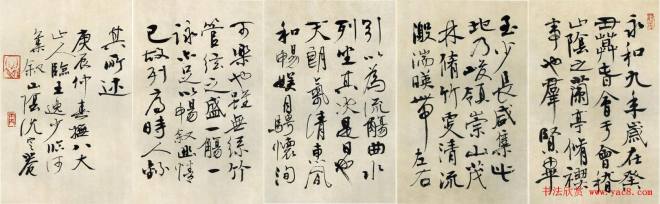 永和九年歲在癸
丑暮春會于會稽
山陰之蘭亭脩禊
事也羣賢畢
至少長咸集此
地乃峻嶺崇山茂
林脩竹更清流
激湍暎帶左右
引以為流觴曲水
列坐其次是日也
天朗氣清惠風
和暢娛目騁懷洵
可樂也雖無絲竹
管弦之盛一觴一
詠亦足以暢敘幽情
已故列序時人錄
其所述
庚辰仲春撫八大
山人臨王逸少臨河
集敘山陰沈定菴
书法欣赏
www.yac8.com